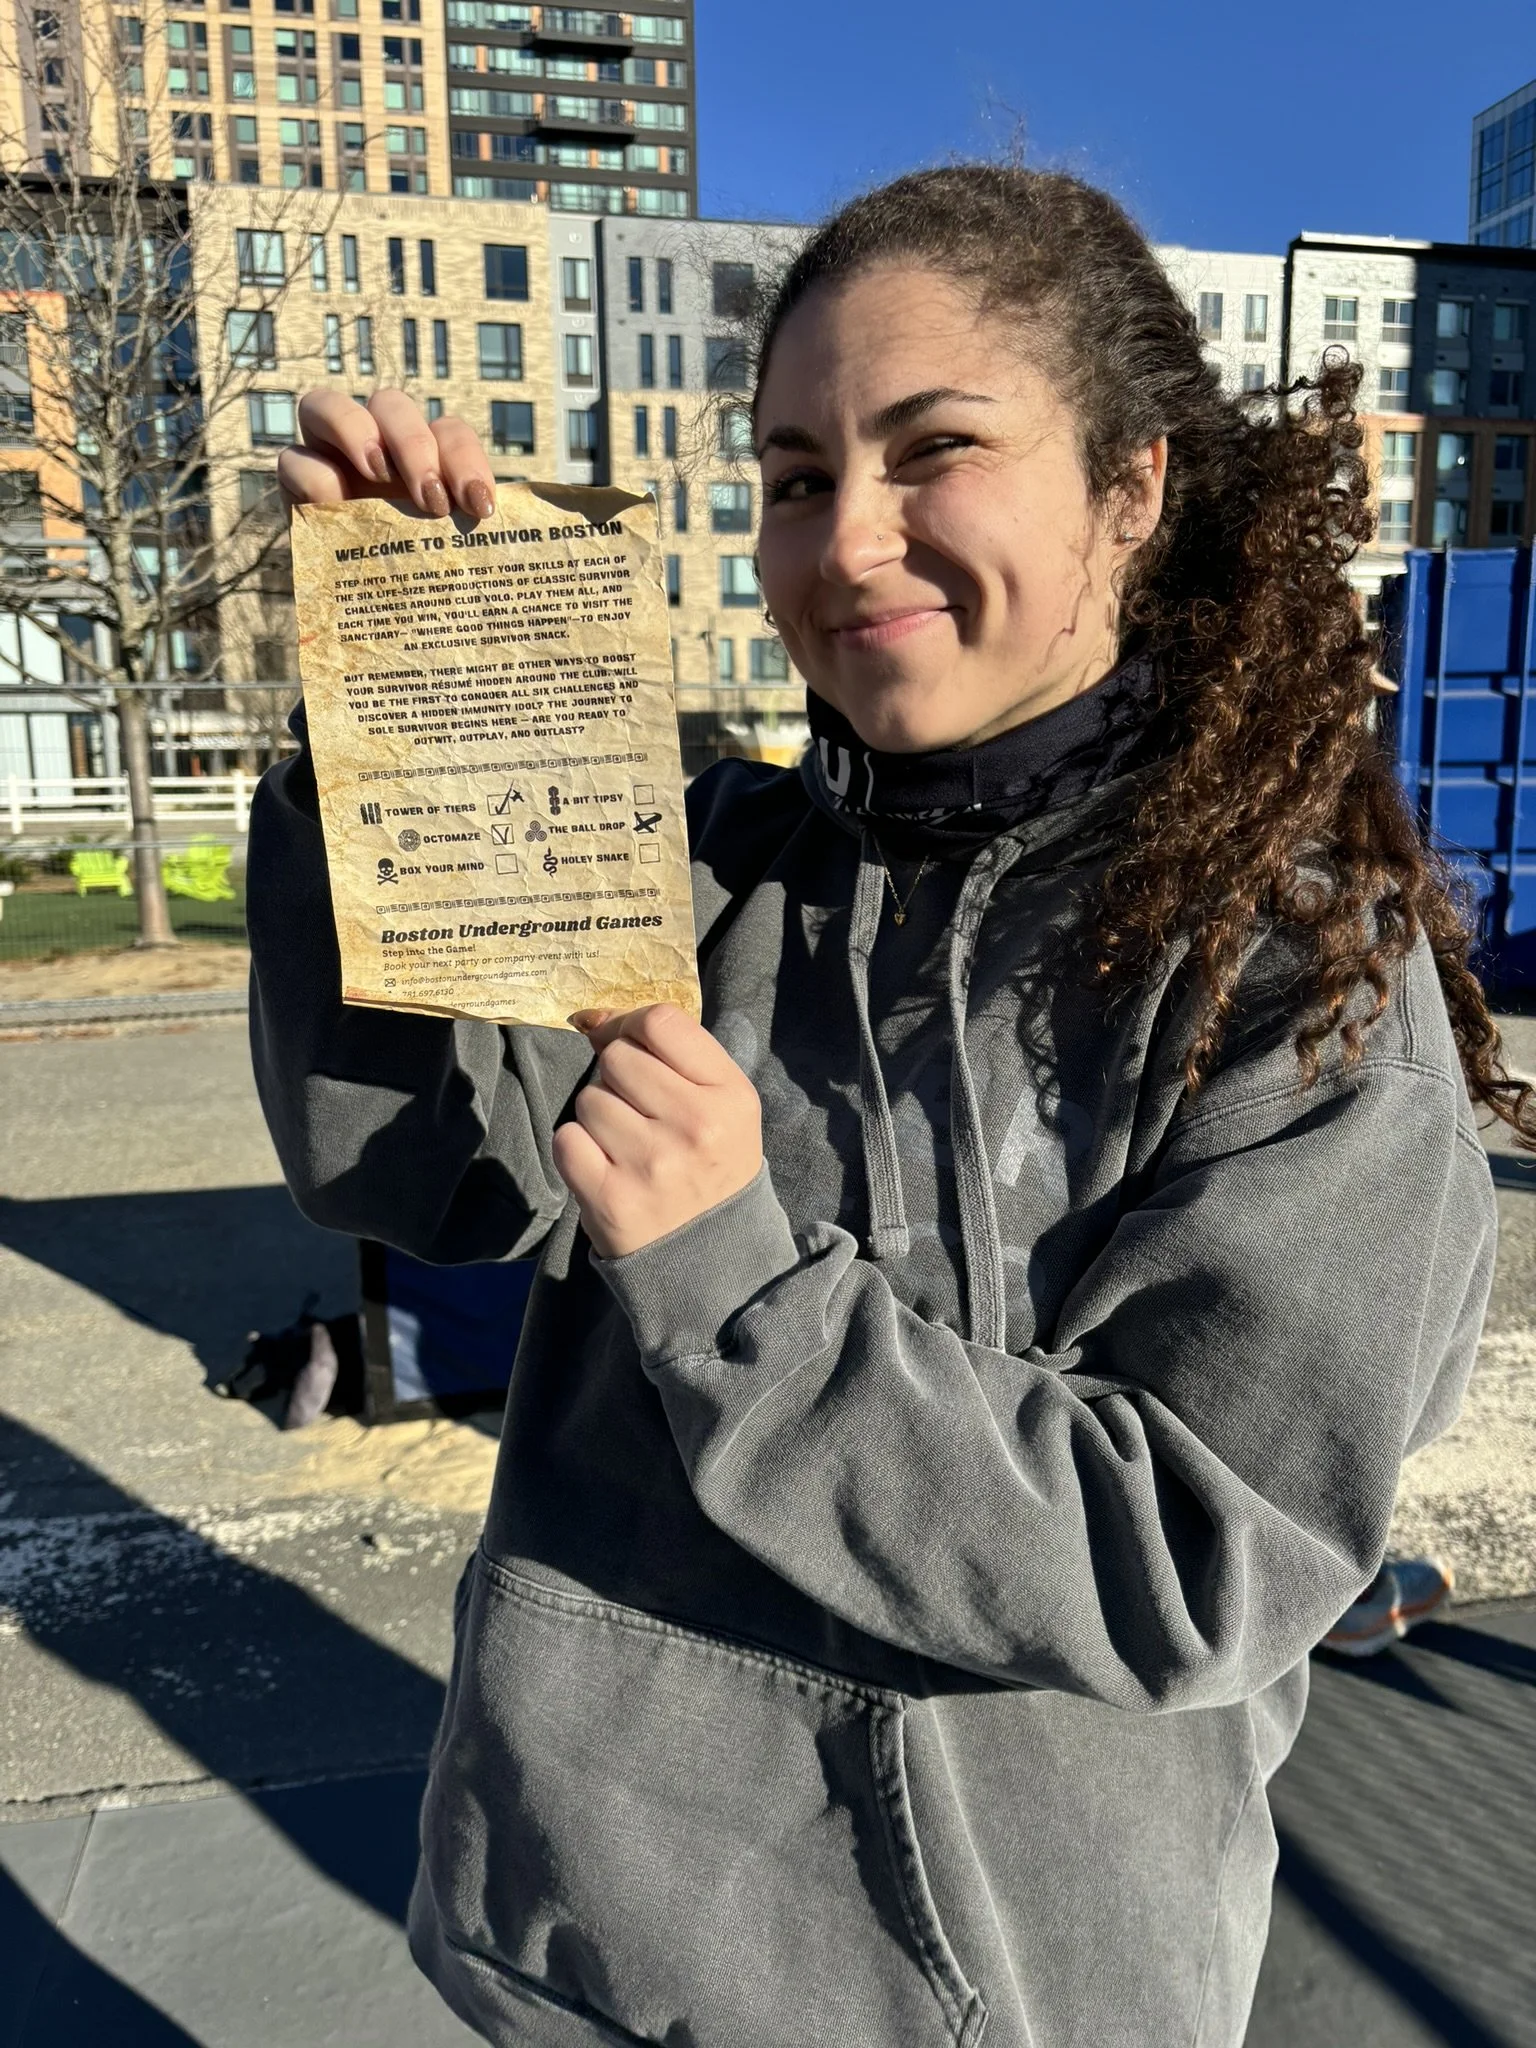 WELCOME TO SURVIVOR BOSTON
STEP INTO THE GAME AND TEST YOUR SKILLS AT EACH OF
THE SIX LIFE-SIZE REPRODUCTIONS OF CLASSIC SURVIVOR
CHALLENGES AROUND CLUB VOLO. PLAY THEM ALL, AND
EACH TIME YOU WIN, YOU'LL EARN A CHANCE TO VISIT THE
SANCTUARY— "WHERE GOOD THINGS HAPPEN"—TO ENJOY
AN EXCLUSIVE SURVIVOR SNACK.
BUT REMEMBER, THERE MIGHT BE OTHER WAYS TO BOOST
YOUR SURVIVOR RÉSUMÉ HIDDEN AROUND THE CLUB. WILL
YOU BE THE FIRST TO CONQUER ALL SIX CHALLENGES AND
DISCOVER A HIDDEN IMMUNITY IDOL? THE JOURNEY TO
SOLE SURVIVOR BEGINS HERE — ARE YOU READY TO
OUTWIT, OUTPLAY, AND OUTLAST?
TOWER OF TIERS A BIT TIPSY
OCTOMAZE THE BALL DROP
BOX YOUR MIND HOLEY SNAKE
Boston Underground Games
Step into the Game!
Book your next party or company event with us!
info@bostonundergroundgames.com
781.697.6130
dergroundgames